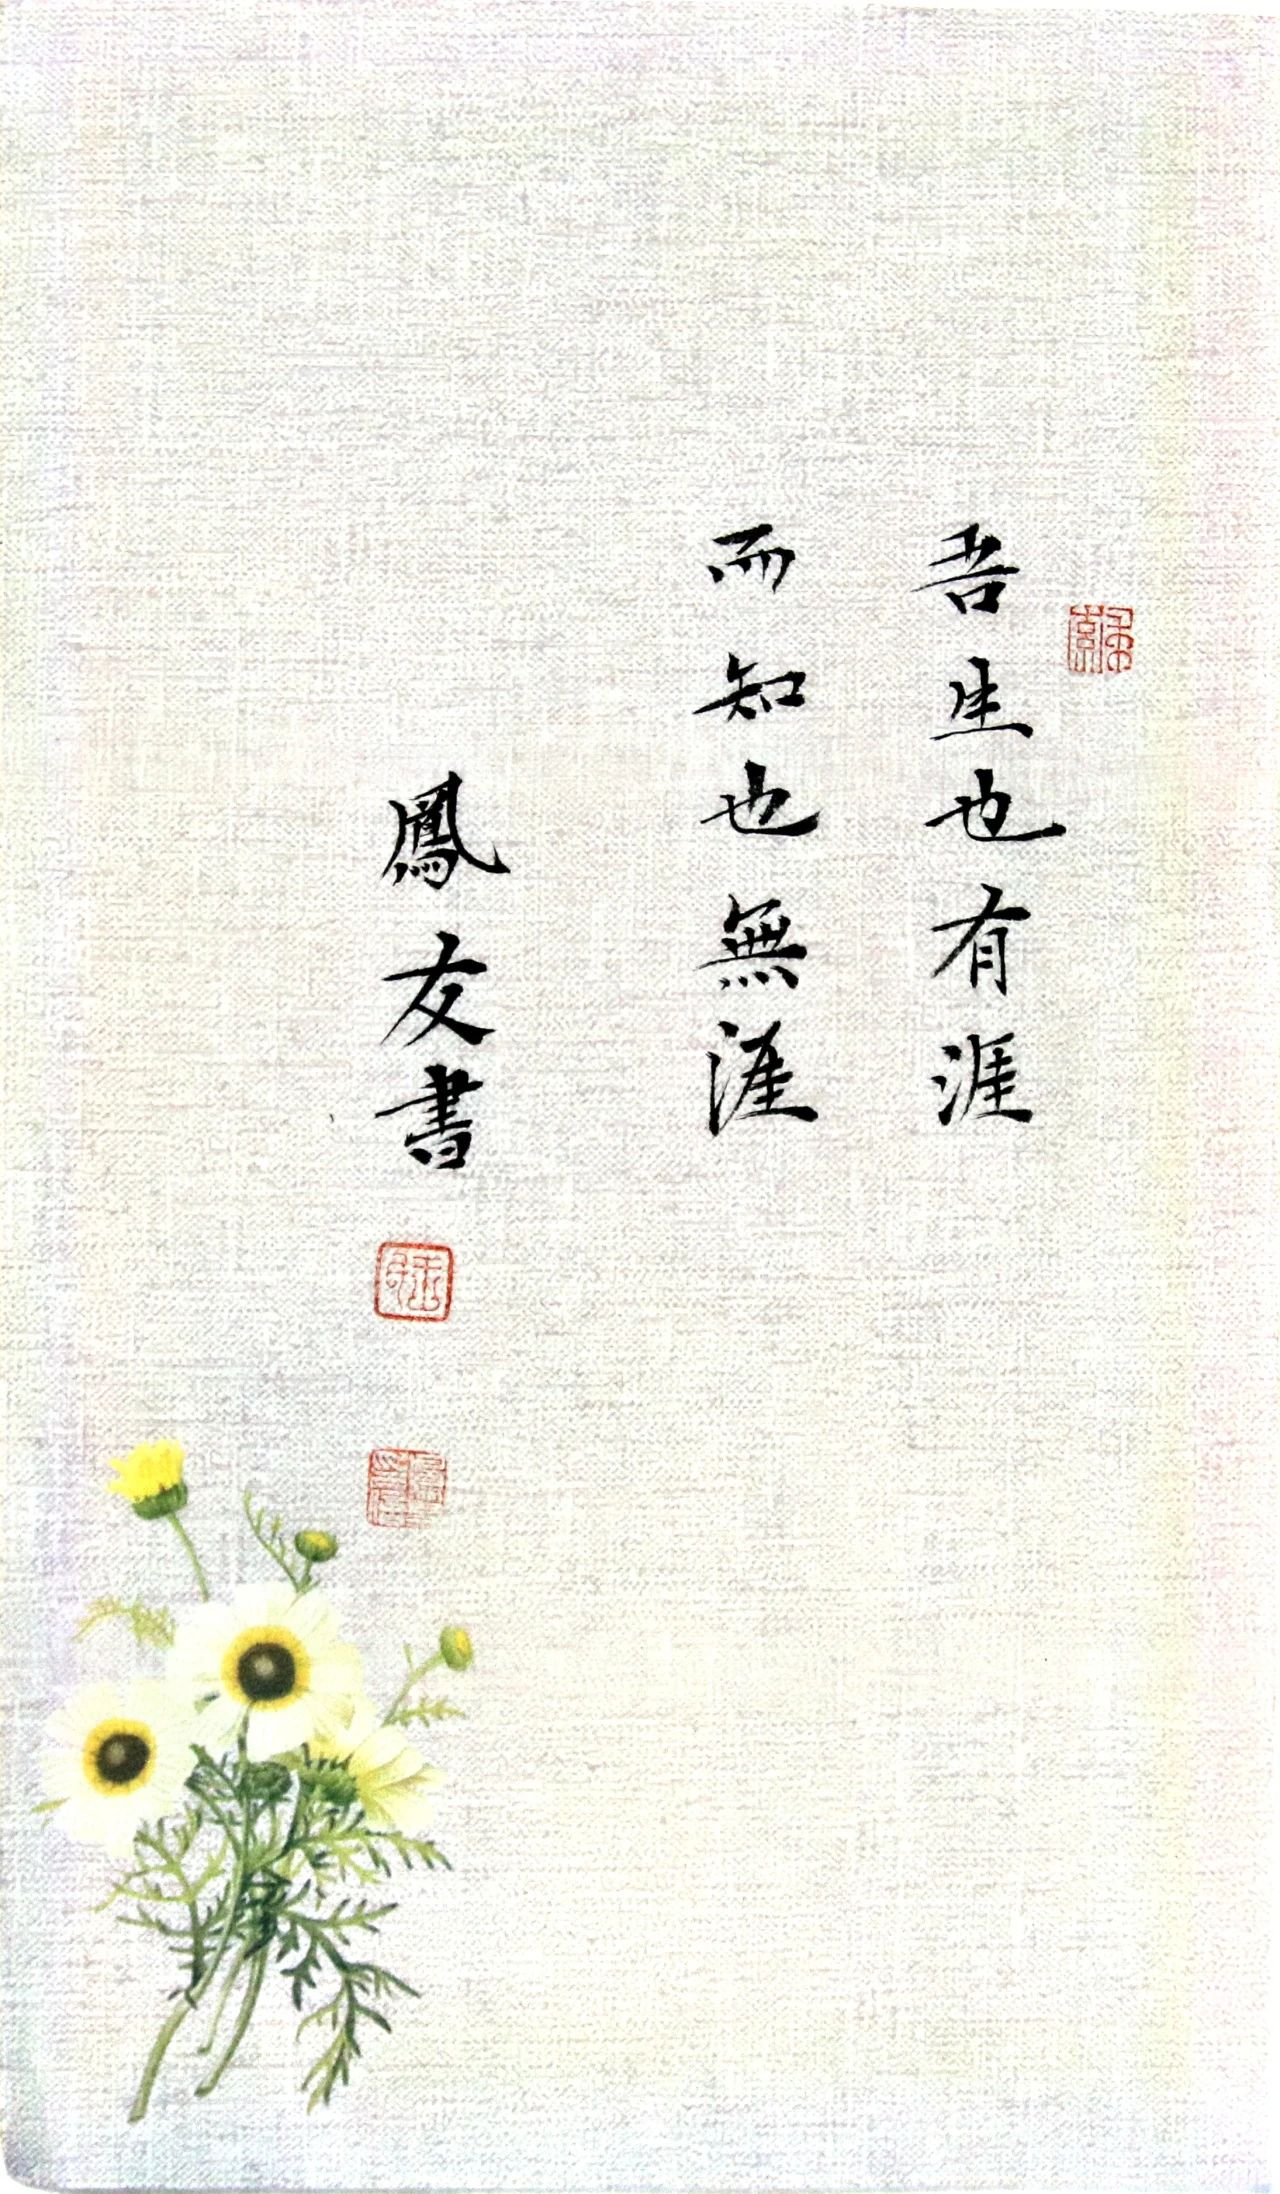 吾生也有涯
而知也無涯
鳳友書